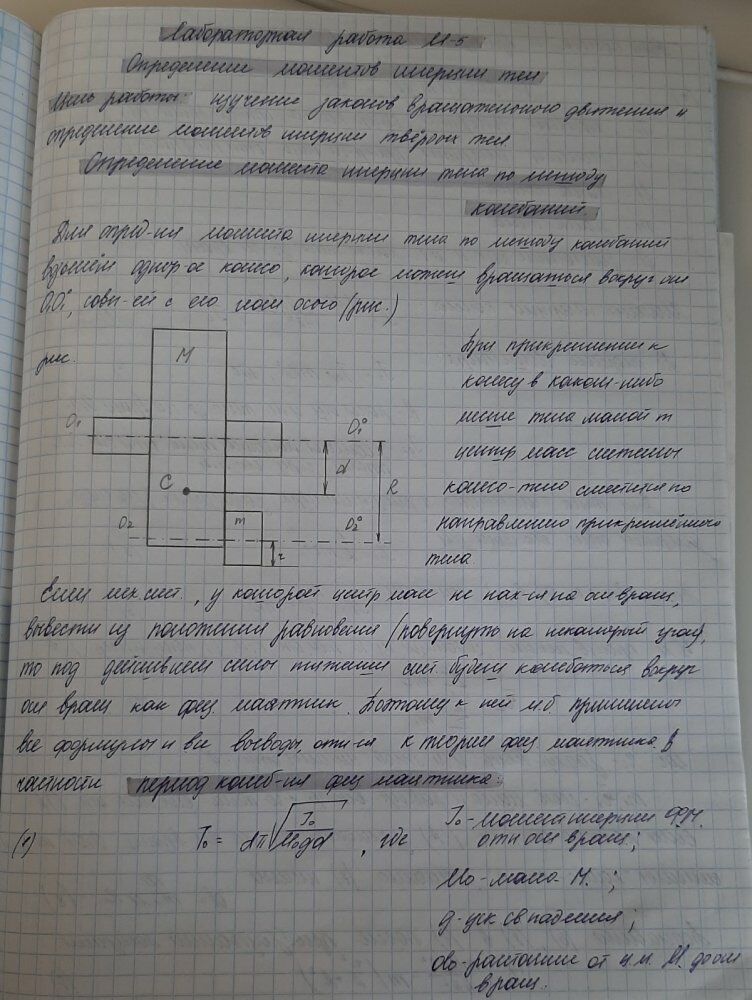 Лабораторная работа М-5
Определение моментов инерции тел
Цель работы: изучение законов вращательного движения и
определение моментов инерции твёрдых тел.
Определение момента инерции тела по методу
колебаний.
Для опред-ия момента инерции тела по методу колебаний
возьмём однор-ое колесо, которое может вращаться вокруг оси
O₁O₁°, совп-ей с его осью (рис.)
рис.
M
O₁
O₁°
d
R
C
O₂
m
O₂°
r
При прикреплении к
колесу в каком-либо
месте тела малой m
центр масс системы
колесо-тело сместится по
направлению прикреплённого
тела.
Если мех сист., у которой центр масс не нах-ся на оси вращ,
вывести из положения равновесия (повернуть на некоторый угол),
то под действием силы тяжести сист. будет колебаться вокруг
оси вращ как физ. маятник. Поэтому к ней м.б. применены
все формулы и все выводы, отн-ся к теории физ маятника. В
частности период колеб-ия физ маятника:
(1) T₀ = 2π√(J₀/M₀gd) , где
J₀ - момент инерции ФМ.
отн оси вращ;
M₀ - масса М. ;
g - уск св падения;
d₀ - расстояние от ц.м. М. до оси
вращ.